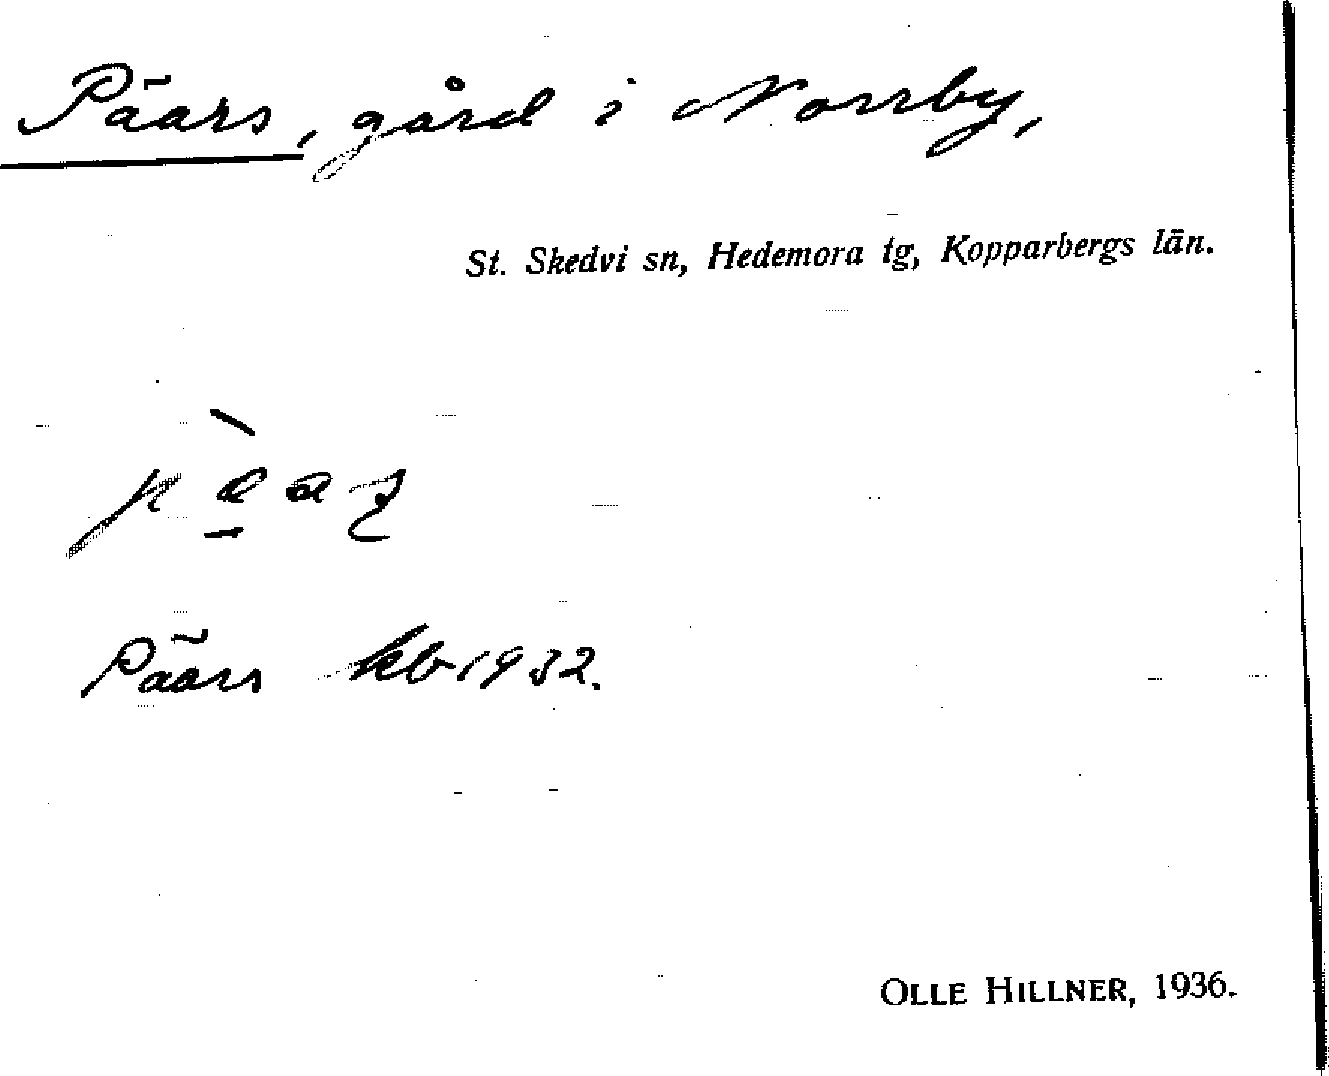 Päars, gård i Norrby,
St. Skedvi sn, Hedemora tg, Kopparbergs län.
Päars kb 1932.
OLLE HILLNER, 1936.